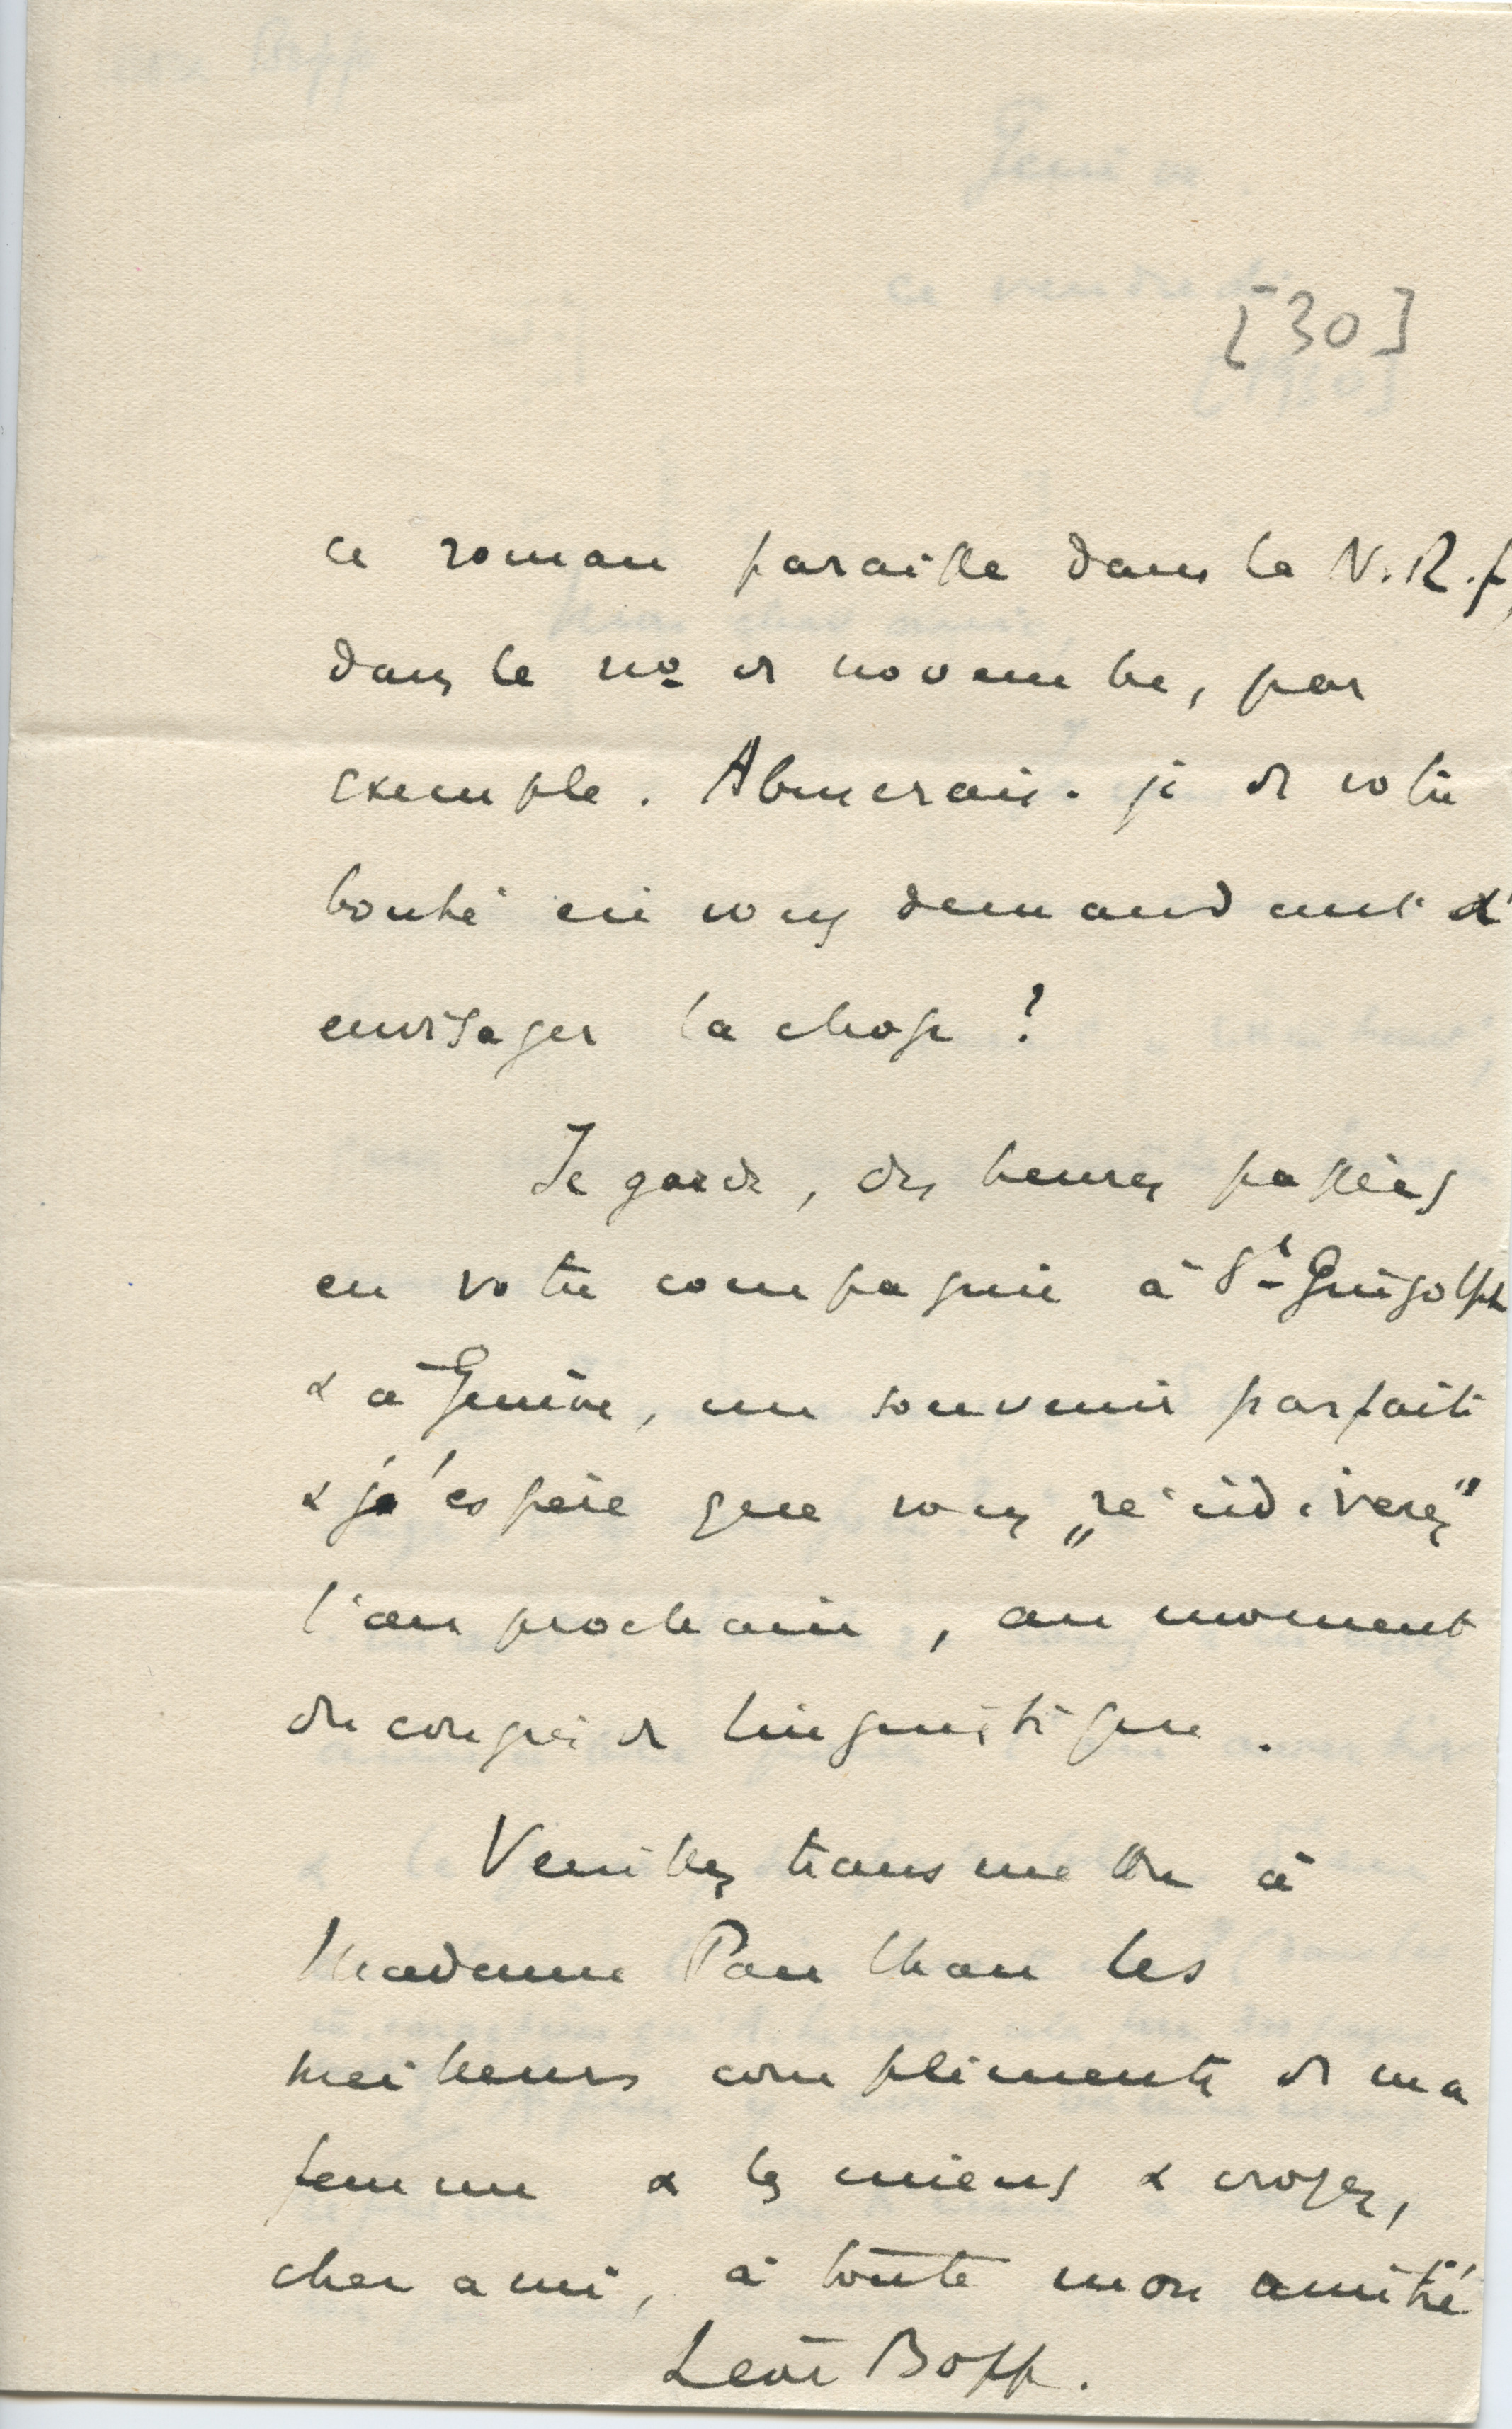 [30]
ce roman paraisse dans la N.R.f,
dans le no de novembre, par
exemple. Abuserais-je de votre
bonté en vous demandant d'
envisager la chose ?
Je garde, des heures passées
en votre compagnie à St Gingolph
& à Genève, un souvenir parfait
& j'espère que vous „récidiverez"
l'an prochain, au moment
du congrès de linguistique.
Veuillez transmettre à
Madame Paulhan les
meilleurs compliments de ma
femme & les miens & croyez,
cher ami, à toute mon amitié
Léon Bopp.